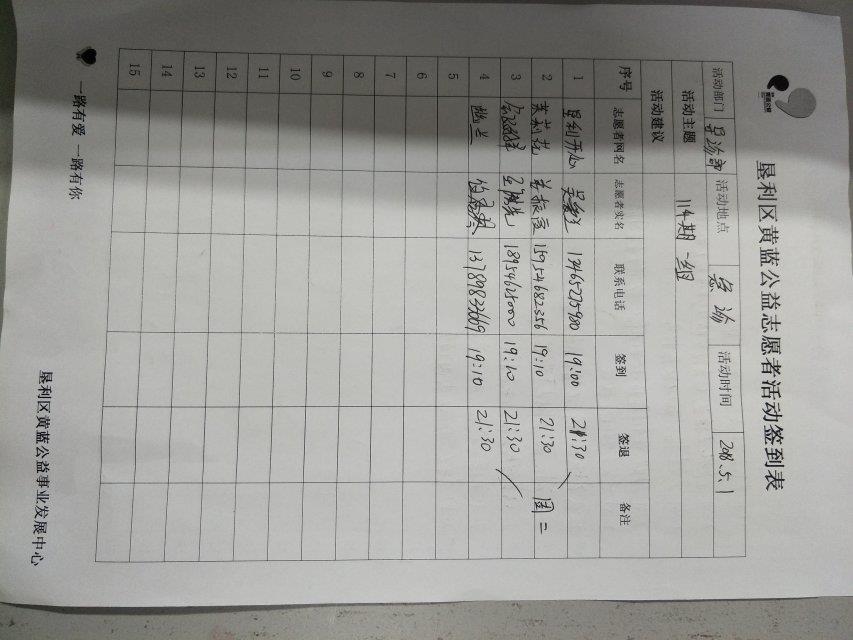 垦利区黄蓝公益志愿者活动签到表
活动部门 活动地点 活动时间 2018.5.1
活动主题 114期一组
活动建议
序号 志愿者网名 志愿者实名 联系电话 签到 签退 备注
1 13465275980 19:00 21:30
2 茉莉花 15954682356 19:10 21:30 周二
3 18954628000 19:10 21:30
4 13789832669 19:10 21:30
5
6
7
8
9
10
11
12
13
14
15
一路有爱 一路有你
垦利区黄蓝公益事业发展中心